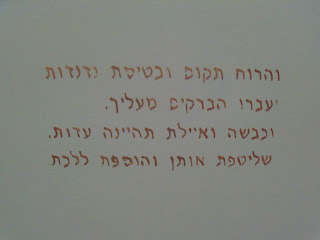 והרוח תקום ובטיסת נדנדות
יעברו הברקים מעליך.
וכבשה ואיילת תהיינה עדות.
שליטפת אותן והוספת ללכת